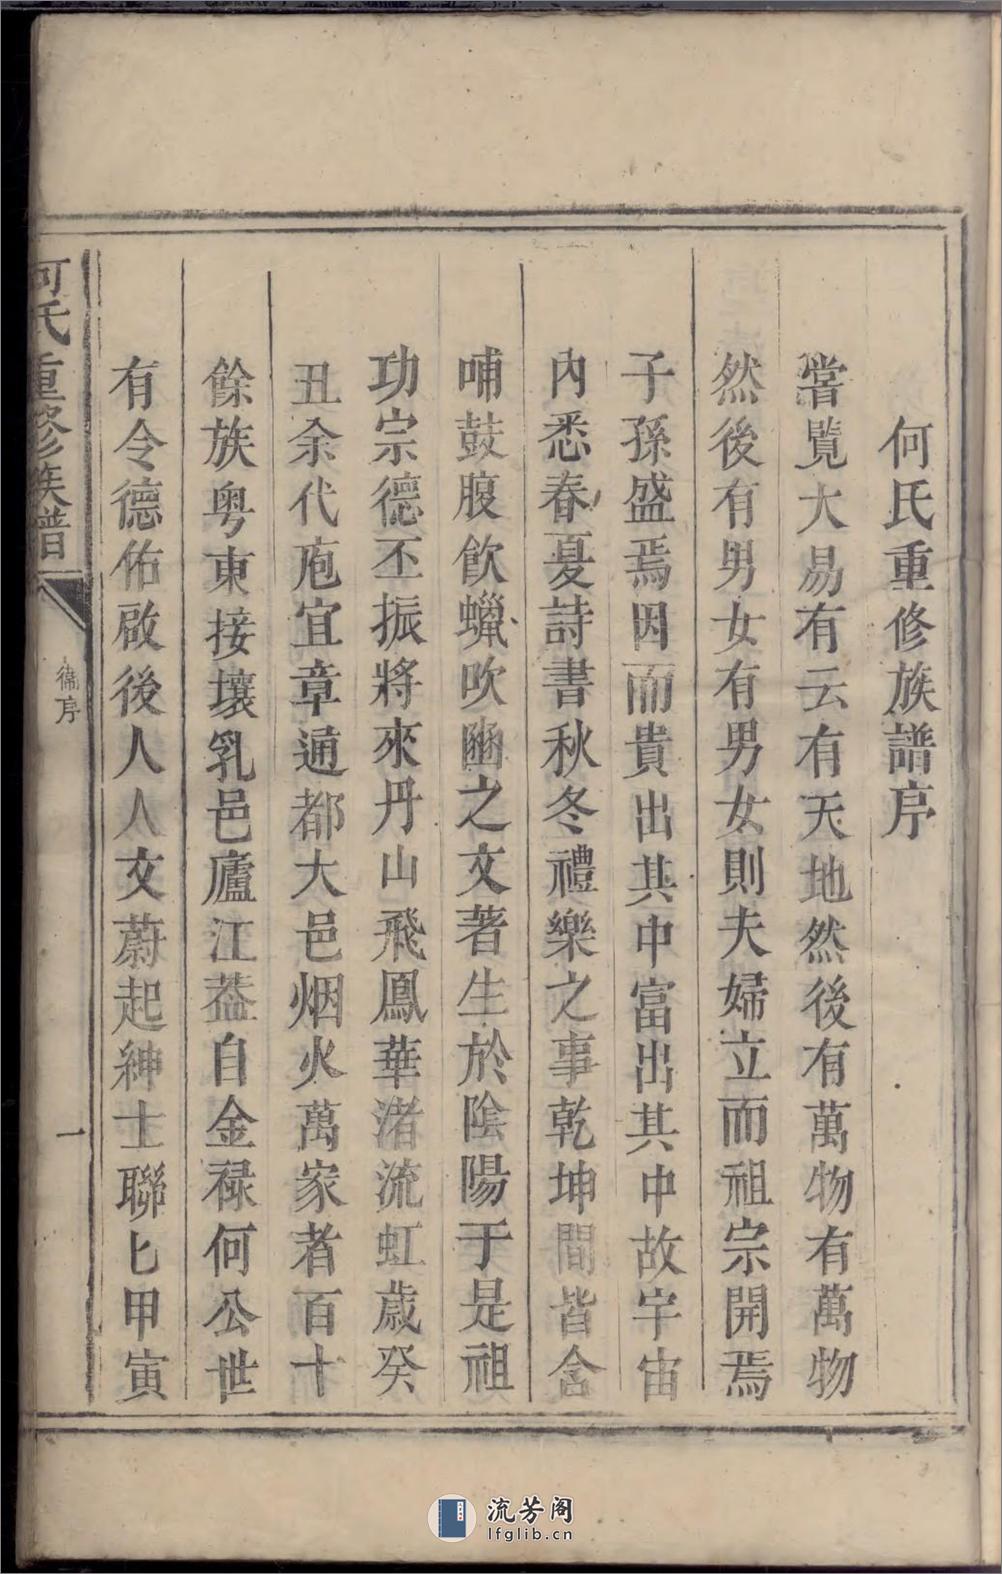 何氏重修族譜序
嘗覽大易有云有天地然後有萬物有萬物
然後有男女有男女則夫婦立而祖宗開焉
子孫盛焉因而貴出其中富出其中故宇宙
內悉春夏詩書秋冬禮樂之事乾坤間皆含
哺鼓腹飲蠟吹豳之文著生於陰陽于是祖
功宗德丕振將來丹山飛鳳華渚流虹歲癸
丑余代庖宜章通都大邑烟火萬家者百十
餘族粤東接壤乳邑廬江葢自金禄何公世
有令德佑啟後人人文蔚起紳士聯匕甲寅
何氏重修族譜
序
一
流芳阁
lfglib.cn